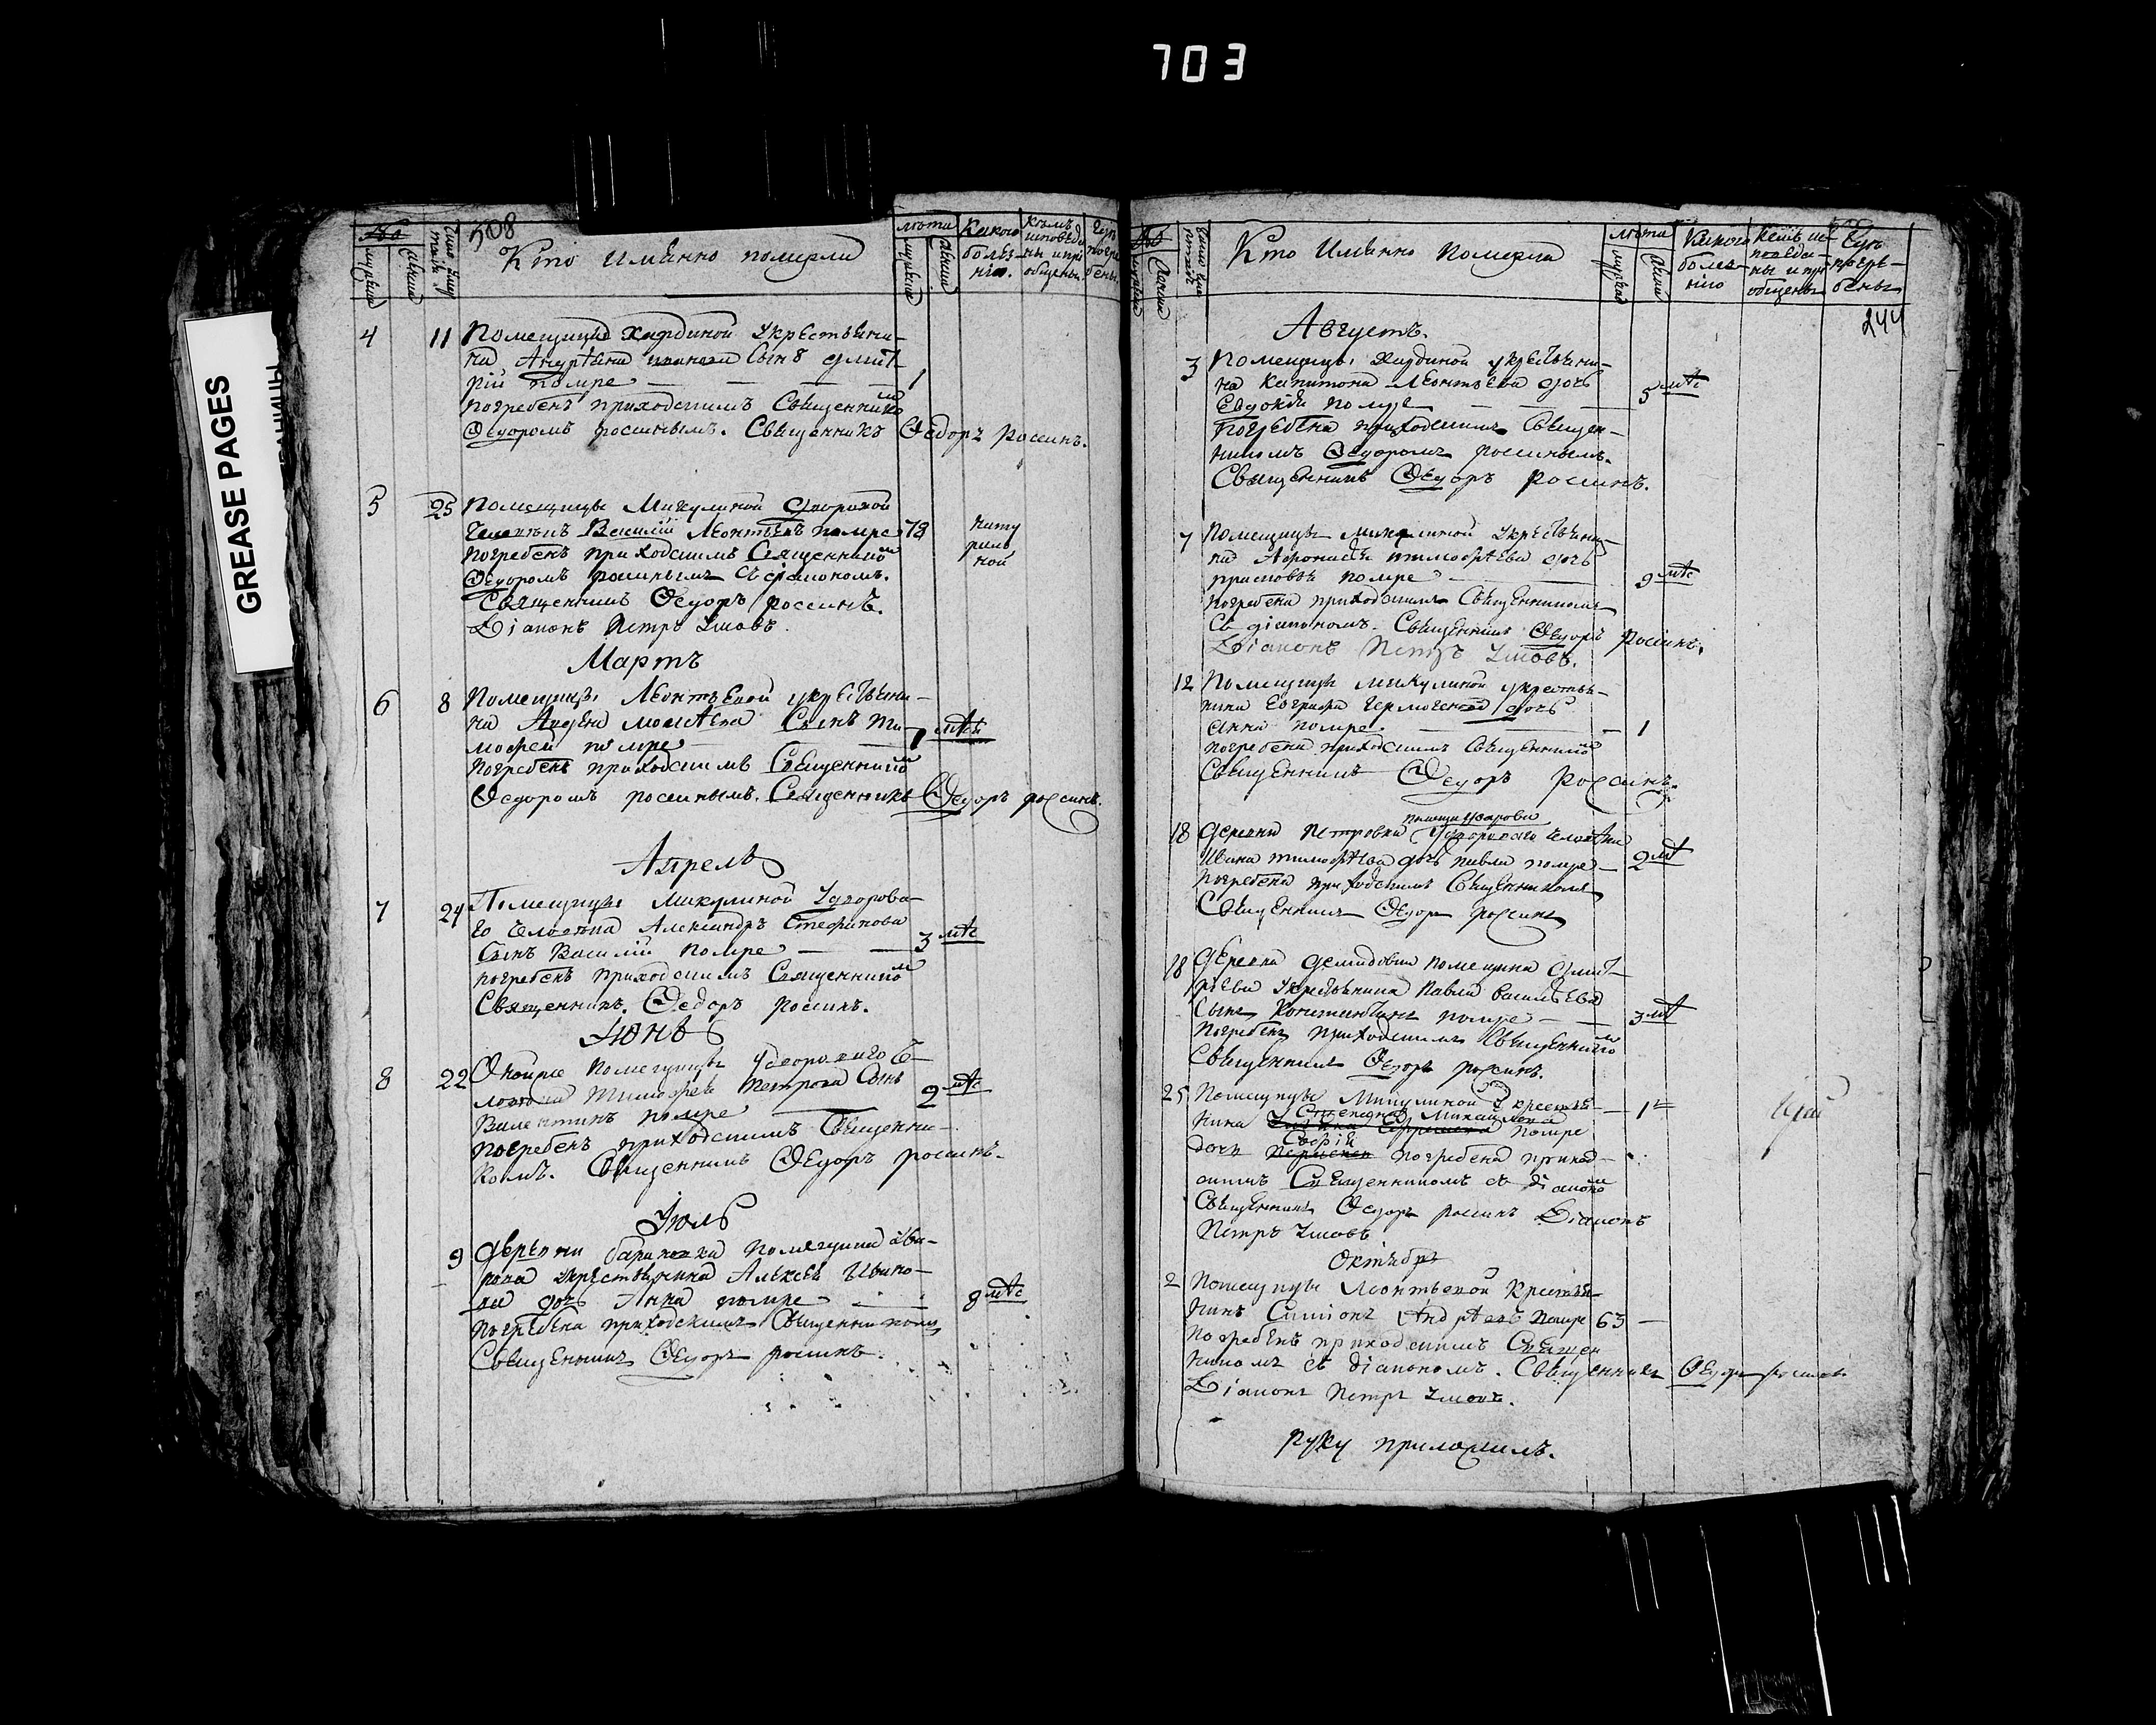 703
GREASE PAGES
508
Число
мужеска
женска
Кто Имѣнно померли
лѣта
мужеска
женска
Какою болѣзнiю.
Кѣмъ исповѣданы и прiобщены
Гдѣ погребены
4 11 Помещицы Хардиной укрестьяни-
на сынъ дмит-
рiй помре — — — 1
погребенъ приходскимъ Священникомъ
Ѳедоромъ россинымъ. Священникъ Ѳедоръ россинъ.
5 25 Помещицы Микулиной дворовой
человѣкъ Василiй Леонтьевъ помре 78 натуральной
погребенъ приходскимъ Священникомъ
Ѳедоромъ россинымъ съ дiакономъ.
Священникъ Ѳедоръ россинъ.
Дiаконъ Петръ Умовъ.
Мартъ
6 8 Помещицы Леонтьевой укрестьяни-
на Авдея моисѣева Сынъ Ти-
мофей помре — 1 мѣс
погребенъ приходскимъ Священникомъ
Ѳедоромъ россинымъ. Священникъ Ѳедоръ россинъ.
Апрель
7 24 Помещицы Микулиной Удворова-
го человѣка Александръ Стефанова
Сынъ Василiй помре — — 3 мѣс
погребенъ приходскимъ Священникомъ
Священникъ. Ѳедоръ россинъ.
Iюнь
8 22 Оной же помещицы Удвороваго че-
ловѣка Тимофея Петрова Сынъ 2 мѣс
Валентинъ помре —
погребенъ приходскимъ Священни-
комъ. Священникъ Ѳедоръ россинъ.
Iюль
9 деревни помещика
укрестьянина Алексѣя Ивано-
ва дочь Анна помре — 8 мѣс
погребена приходскимъ Священникомъ
Священникъ Ѳедоръ россинъ.
Кто Имѣнно Померли
лѣта
мужеска
женска
Какою болезнiю
Кемъ исповеданы и прiобщены
Гдѣ погребены
244
Августъ.
3 Помещицы Хардиной укрестьяни-
на Капитона Леонтьева дочь
Евдокiя помре — — 5 мѣс
Погребена приходскимъ Священ-
никомъ Ѳедоромъ россинымъ.
Священникъ Ѳедоръ россинъ.
7 Помещицы Микулиной укрестьяни-
на Афонасья тимофѣева дочь
помре 9 мѣс
погребена приходскимъ Священникомъ
Съ дiакономъ. Священникъ Ѳедоръ Россинъ.
Дiаконъ Петръ Умовъ.
12 Помещицы микулиной укрестья-
нина Евграфа Гермогенова дочь
Анна помре. — 1
погребена приходскимъ Священникомъ
Священникъ Ѳедоръ россинъ.
18 деревни Петровки Удвороваго человѣка
Ивана тимофѣева дочь павла помре — 2 мѣ
погребена приходскимъ Священникомъ
Священникъ Ѳедоръ россинъ
18 деревни демидовки помещика дмит-
рiева укрестьянина Павла васильева
Сынъ Константинъ помре — 3 мѣ
погребенъ приходскимъ Священникомъ
Священникъ Ѳедоръ россинъ.
25 Помещицы Микулиной Укрестья- — 1
нина Степана Михайлова помре
дочь Софiя погребена приход-
скимъ Священникомъ съ дiакономъ
Священникъ Ѳедоръ россинъ Дiаконъ
Петръ Умовъ
Октябрь
2 Помещицы Леонтьевой Крестья-
нинъ Симионъ Андрѣевъ помре 63 —
погребенъ приходскимъ Священ
никомъ съ дiакономъ. Священникъ Ѳедоръ россинъ
Дiаконъ Петръ Умовъ.
руку приложилъ.